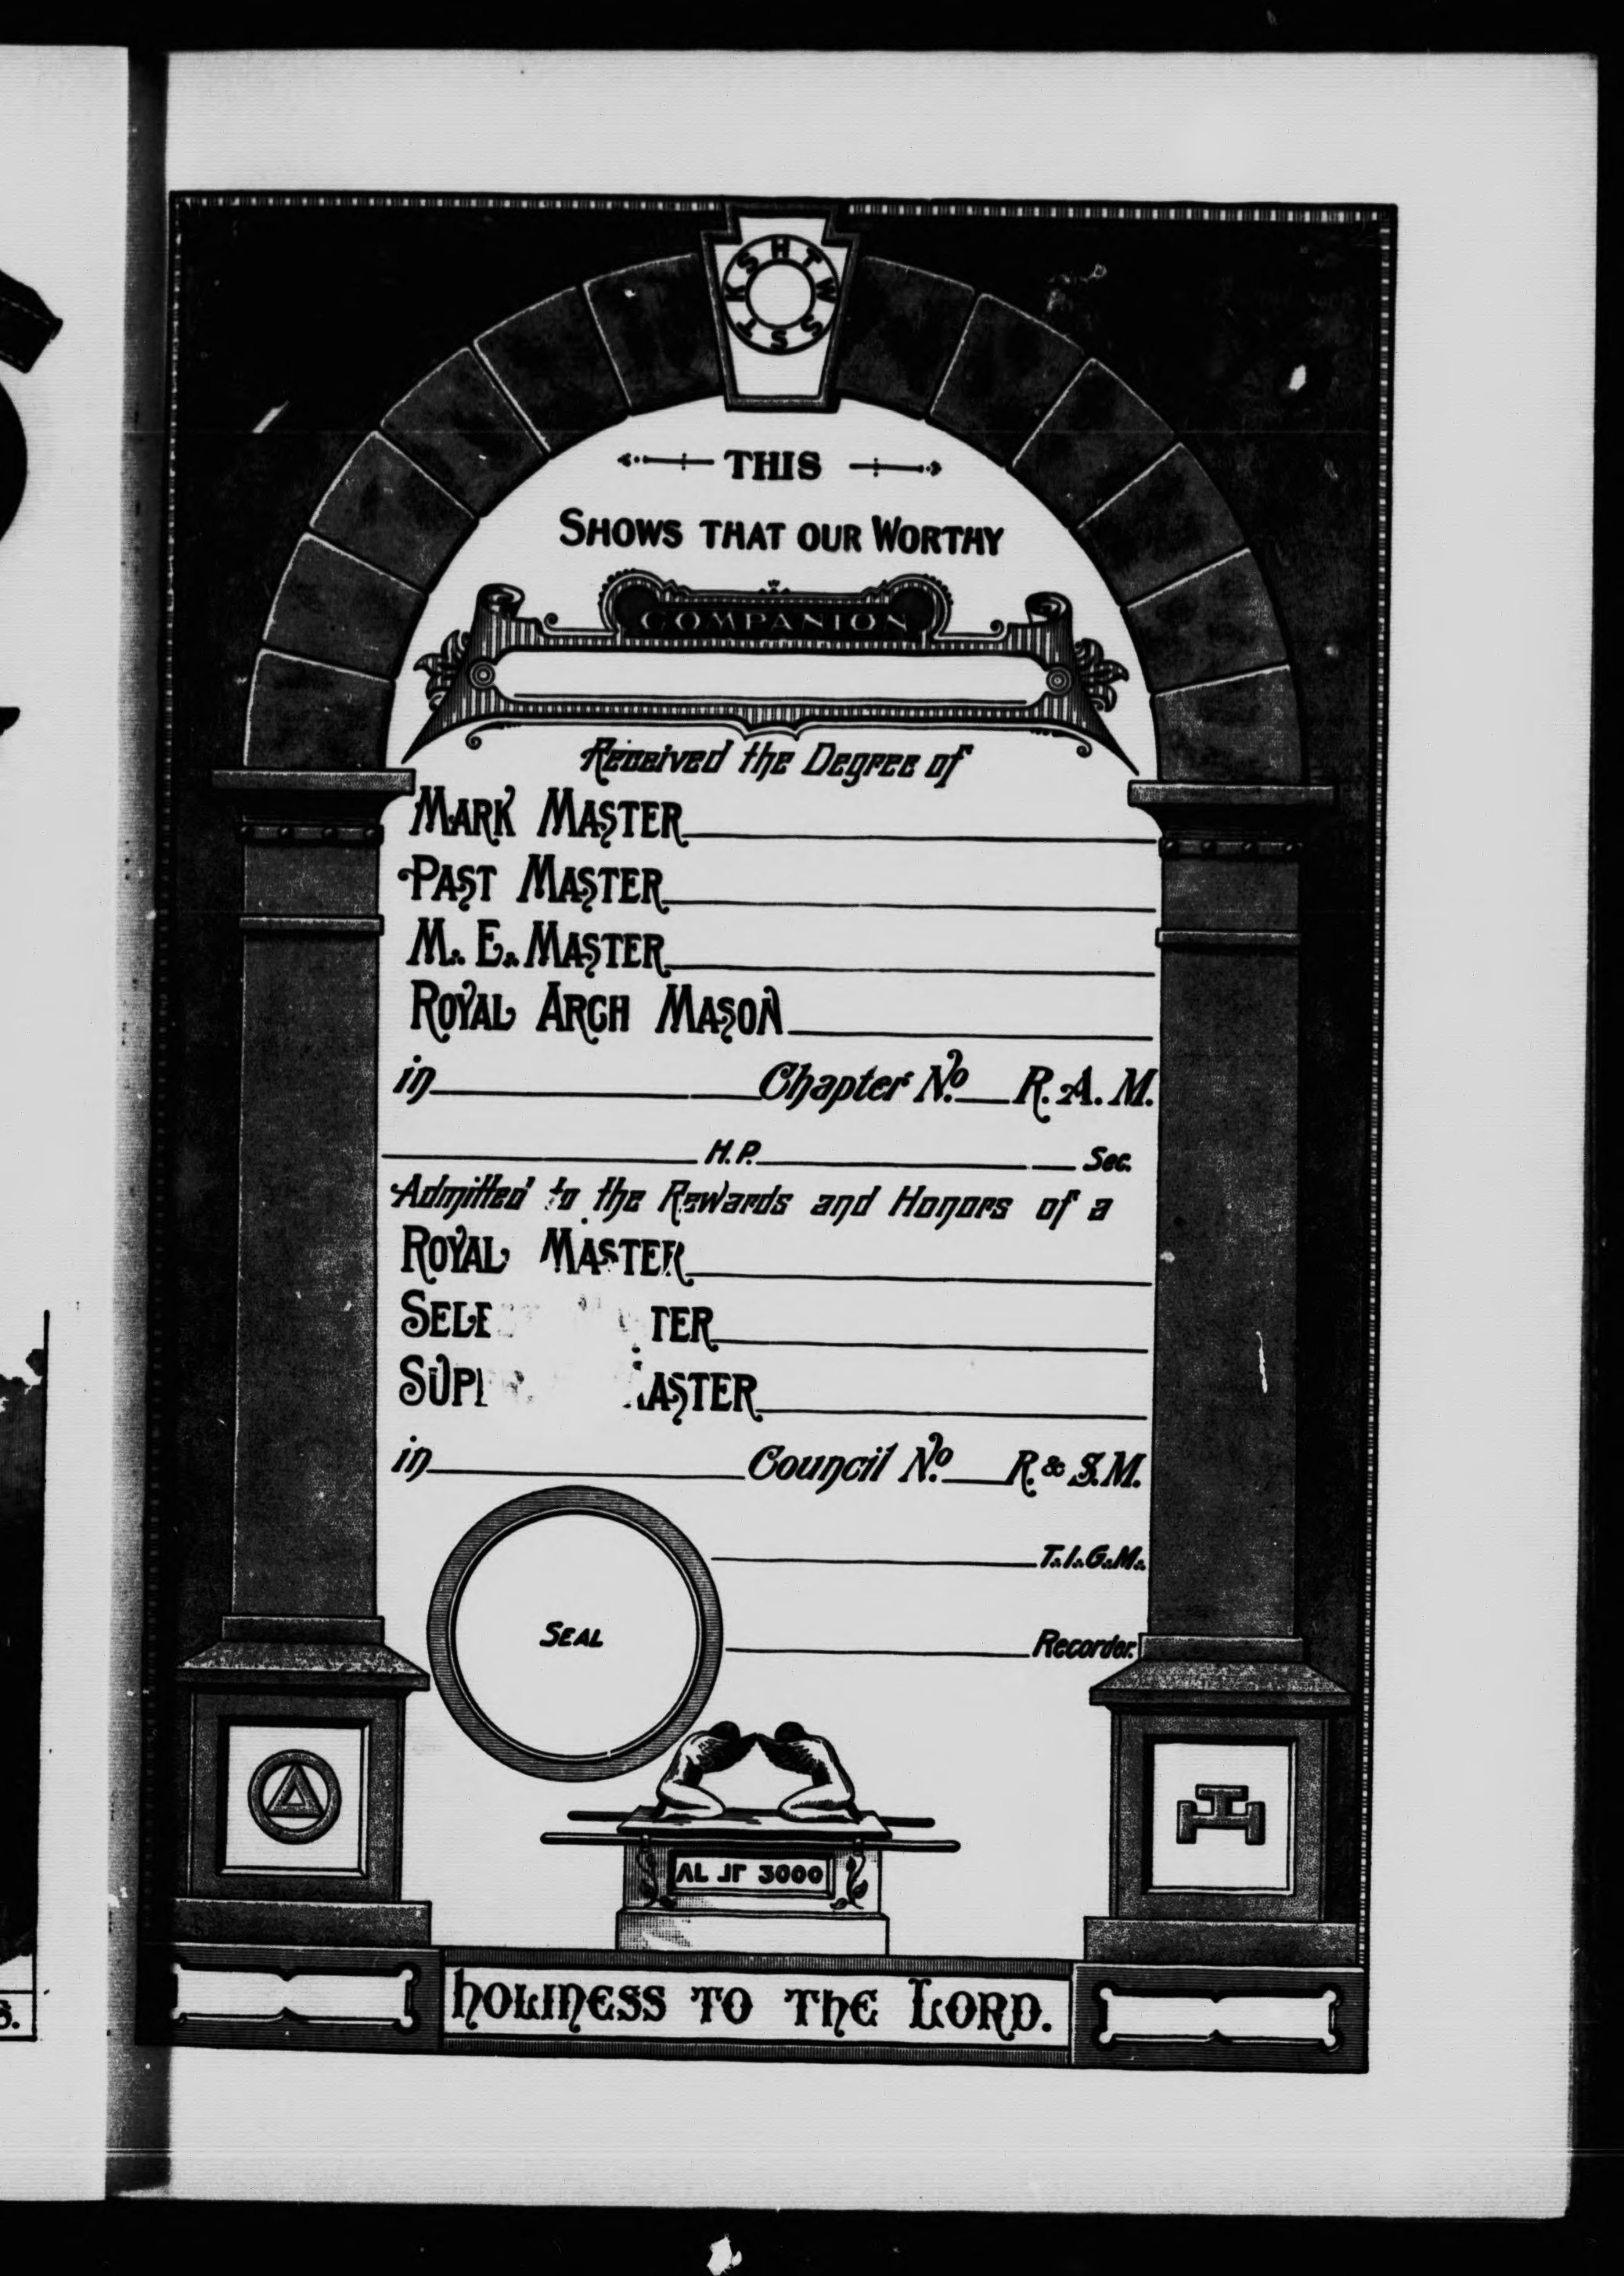 H T W S S T K S
THIS
SHOWS THAT OUR WORTHY
COMPANION
Received the Degree of
MARK MASTER
PAST MASTER
M∴ E∴ MASTER
ROYAL ARCH MASON
in Chapter No. R. A. M.
H.P. Sec.
Admitted to the Rewards and Honors of a
ROYAL MASTER
TER
ASTER
in Council No. R. & S.M.
T∴I∴G∴M∴
SEAL
Recorder.
3000
HOLINESS TO THE LORD.
S.